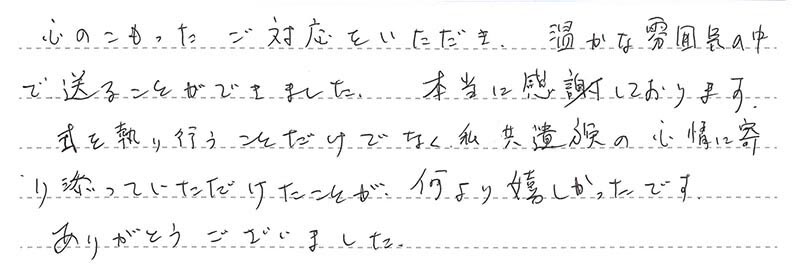 心のこもったご対応をいただき、温かな雰囲気の中
で送ることができました。本当に感謝しております。
式を執り行うことだけでなく、私共遺族の心情に寄
り添っていただけたことが、何より嬉しかったです。
ありがとうございました。